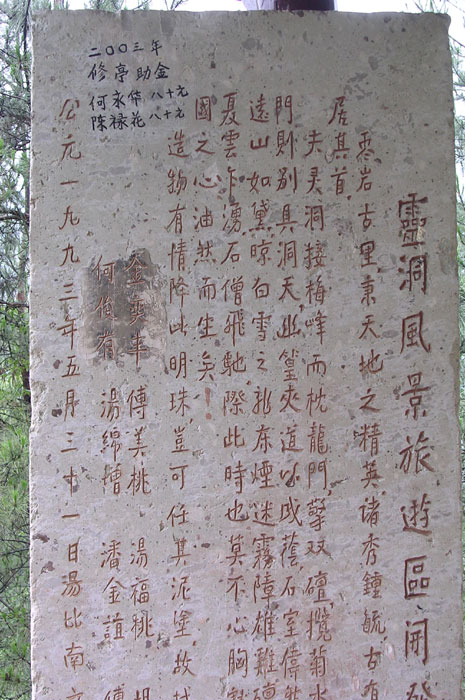 靈洞風景旅遊區開
灵岩古里,秉天地之精英,诸秀鍾毓,古
居其首,
夫灵洞接梅峰而枕龍門,擎双
門則别具洞天,幽篁夾道以成蔭,石室
遠山如黛晾白雪之 煙迷霧障雄雞
夏雲乍湧石僧飛馳,際此時也莫不心胸
國之心油然而生矣!
造物有情降此明珠,豈可任其泥塗故
傅美桃 湯福桃
何俊有 湯綿增 潘金誼 傅
公元一九九三年五月三十一日湯比南
二00三年
修亭助金
何永 八十元
陈禄花 八十元